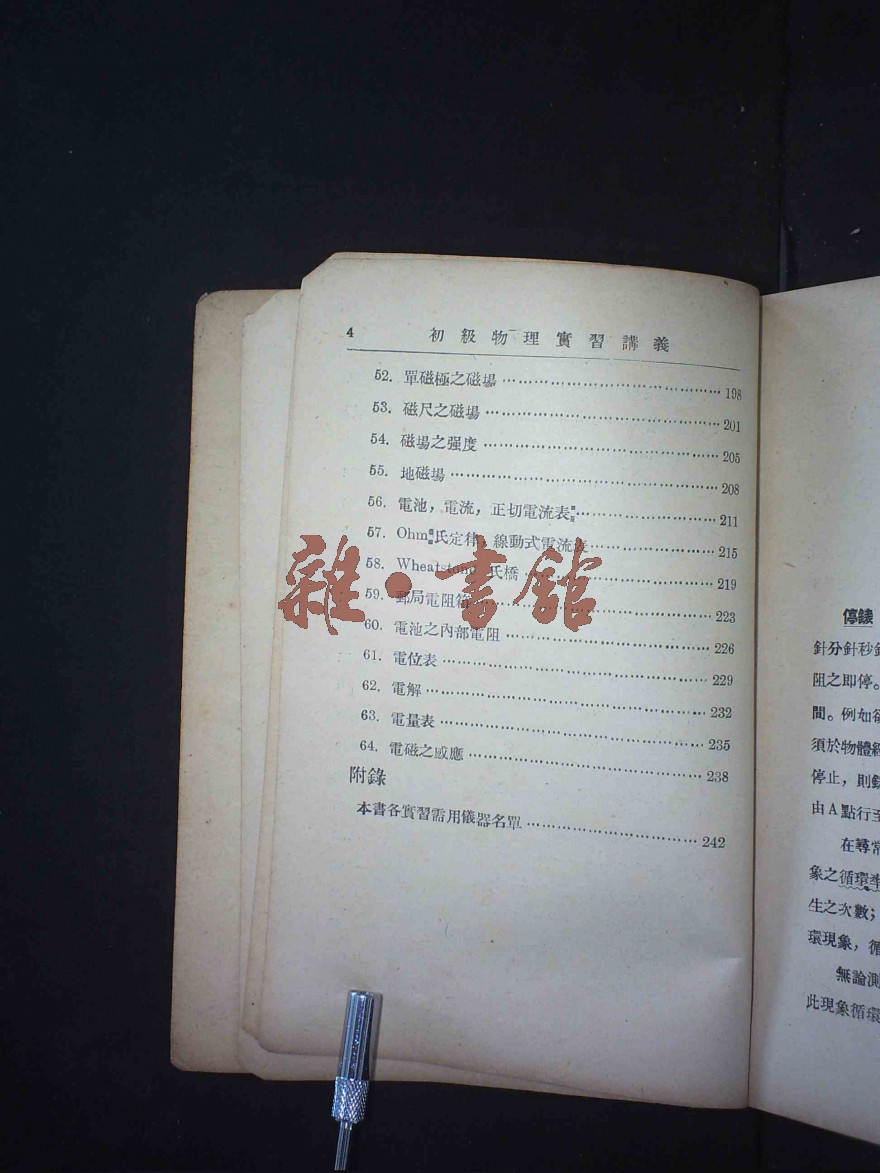 4 初級物理實習講義
52. 單磁極之磁場 198
53. 磁尺之磁場 201
54. 磁場之强度 205
55. 地磁場 208
56. 電池，電流，正切電流表 211
57. Ohm氏定律，線動式電流表 215
58. Wheatstone氏橋 219
59. 郵局電阻箱 223
60. 電池之內部電阻 226
61. 電位表 229
62. 電解 232
63. 電量表 235
64. 電磁之感應 238
附錄
本書各實習需用儀器名單 242
雜·書館
停錶
針分針秒
阻之即停。
間。例如
須於物體
停止，則
由A點行至
在尋常
象之循環
生之次數；
環現象，循
無論測
此現象循環